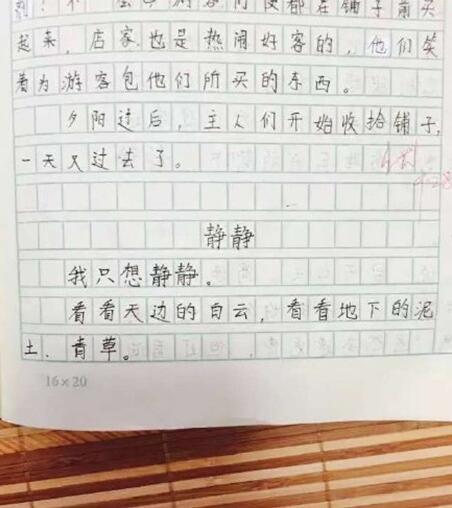 客们便都在铺子前买
起来，店家也是热闹好客的，他们笑
着为游客包他们所买的东西。
夕阳过后，主人们开始收拾铺子，
一天又过去了。
静静
我只想静静。
看看天边的白云，看看地下的泥
土、青草。
16×20